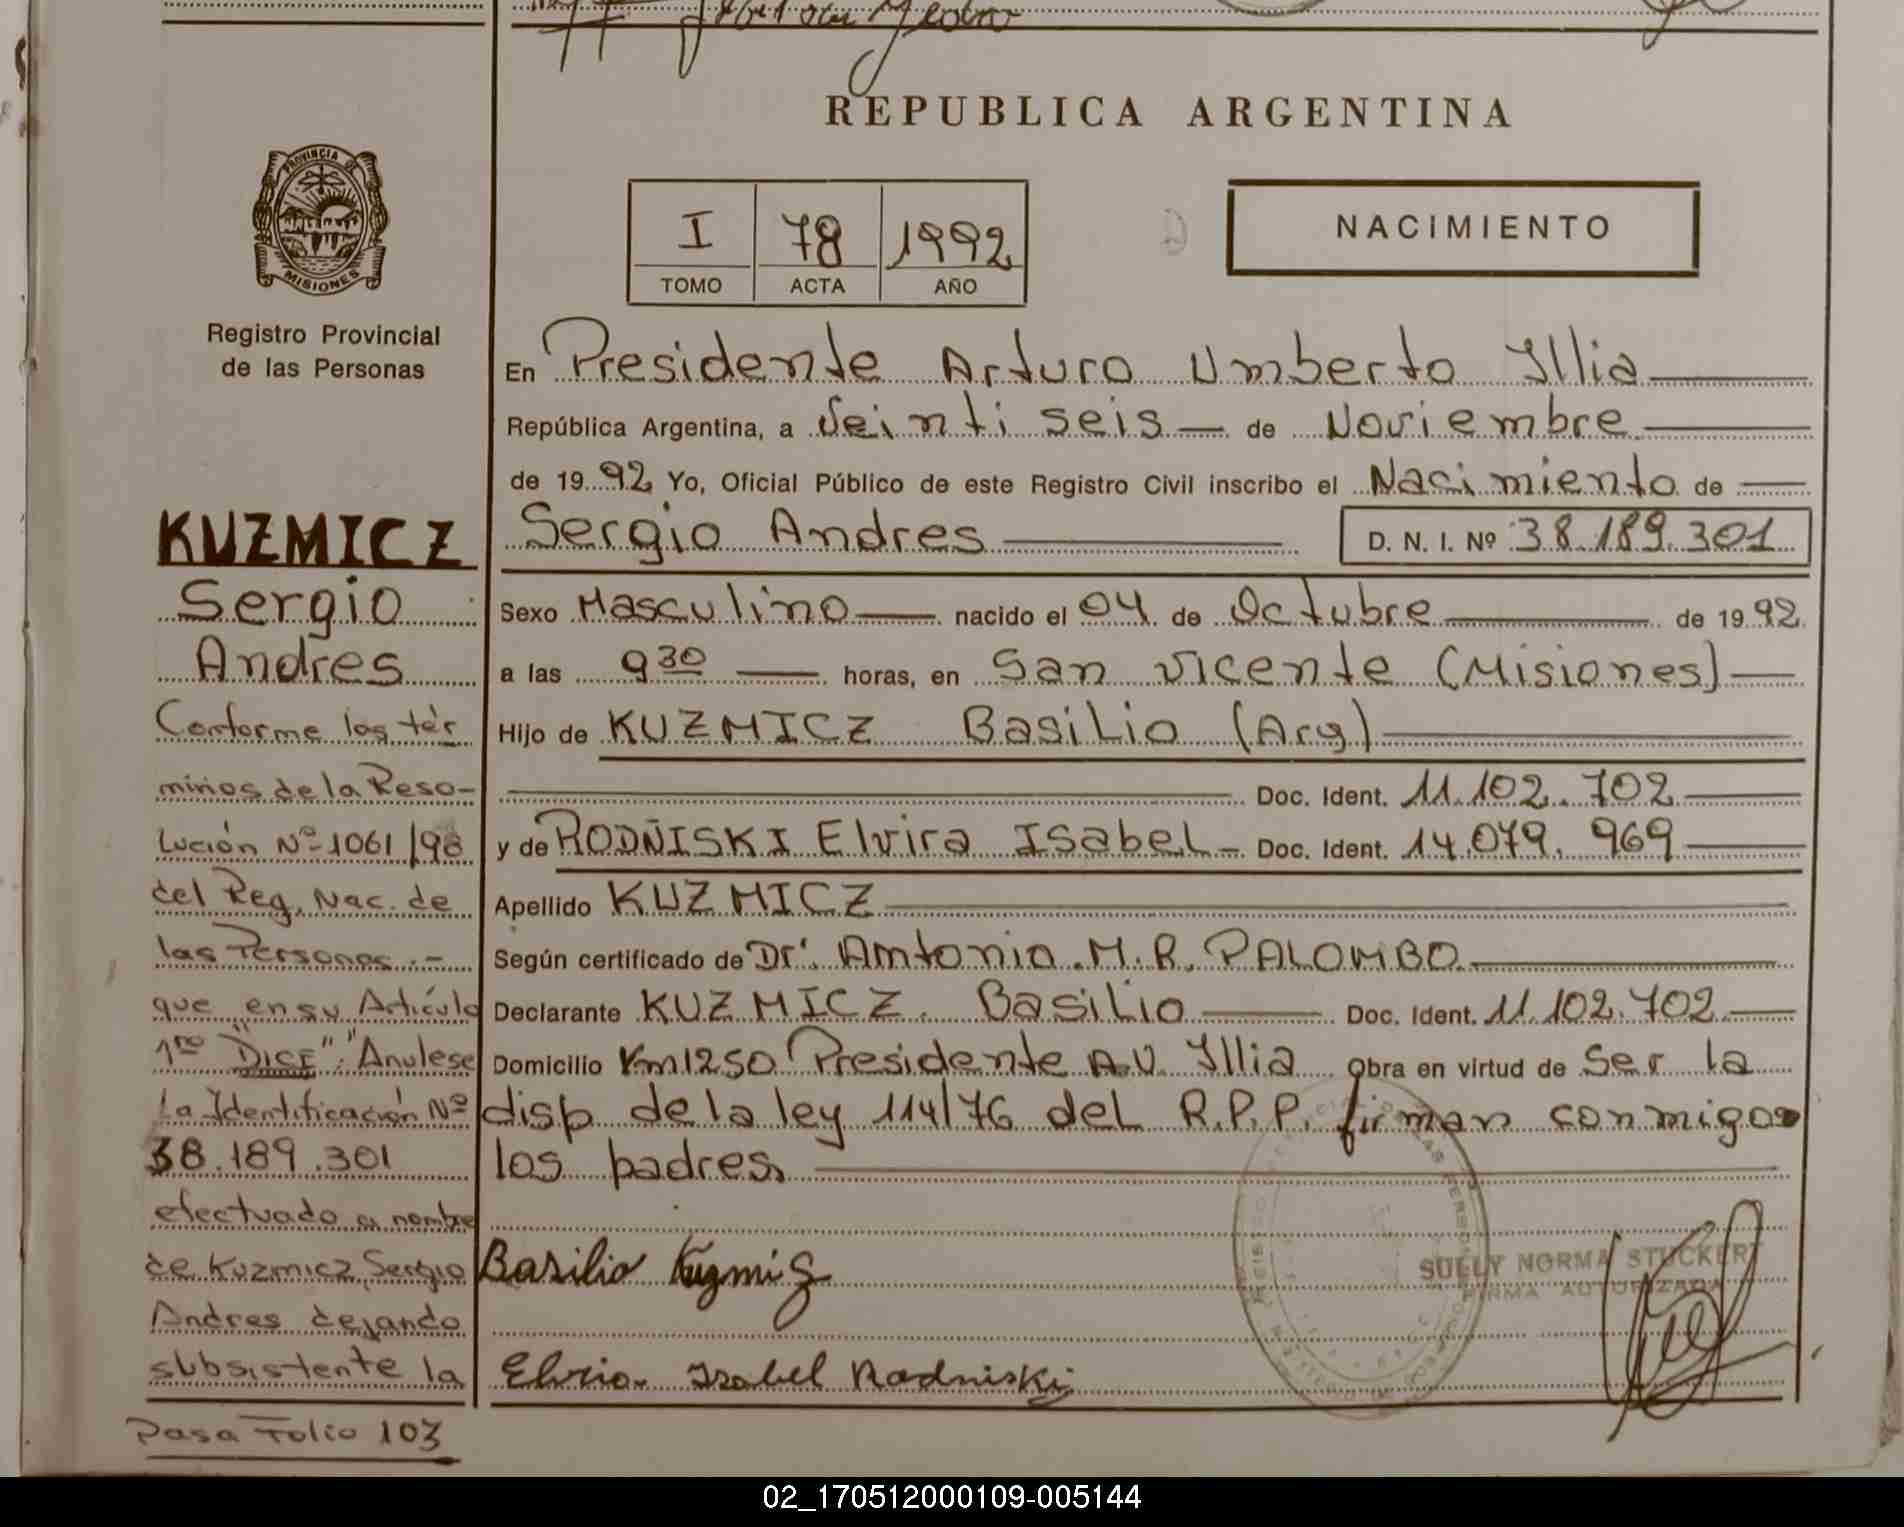 REPUBLICA ARGENTINA
PROVINCIA DE
MISIONES
Registro Provincial
de las Personas
I 78 1992
TOMO ACTA AÑO
NACIMIENTO
En Presidente Arturo Umberto Illia
República Argentina, a Veinti seis de Noviembre
de 1992 Yo, Oficial Público de este Registro Civil inscribo el Nacimiento de
Sergio Andres D. N. I. Nº 38.189.301
Sexo Masculino nacido el 04 de Octubre de 1992
a las 9 30 horas, en San Vicente (Misiones)
Hijo de KUZMICZ Basilio (Arg)
Doc. Ident. 11.102.702
y de RODÑISKI Elvira Isabel Doc. Ident. 14.079.969
Apellido KUZMICZ
Según certificado de Dr. Antonio M.R. PALOMBO
Declarante KUZMICZ Basilio Doc. Ident. 11.102.702
Domicilio Km1250 Presidente A.U. Illia Obra en virtud de Ser la
disp de la ley 114/76 del R.P.P. firman conmigo
los padres
Basilio Kuzmiz
Elvira Isabel Radniski
SULLY NORMA STUCKERT
FIRMA AUTORIZADA
KUZMICZ
Sergio
Andres
Conforme los tér
minos de la Reso-
lución Nº 1061/98
del Reg. Nac. de
las Personas.-
que en su Artículo
1ro "DICE": "Anulese
la Identificación Nº
38.189.301
efectuado a nombre
de Kuzmicz, Sergio
Andres dejando
subsistente la
Pasa Folio 103
02_170512000109-005144